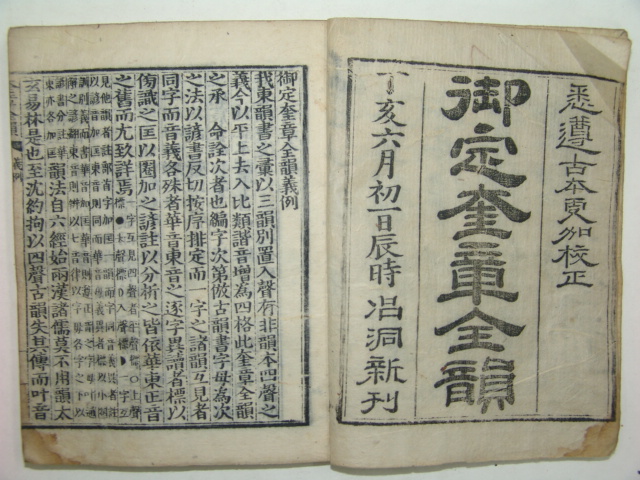 悉遵古本更加校正
御定奎章全韻
丁亥六月初一日辰時 冶洞新刊
御定奎章全韻義例
我東韻書之彙以三韻別置入聲有非韻本四聲之
義今以平上去入比類諧音增為四格此奎章全韻
之承 命詮次者也編字次第倣古韻書字母為次
之法以諺書反切按序排定而一字之諸韻互見者
同字而音義各殊者華音東音之逐字異讀者標以
傍識之匡以圈加之諺註以分析之皆依華東正音
之舊而尤致詳焉
韻法自六經始兩漢諸儒莫不用韻太
玄易林是也至沈約拘以四聲古韻失其傳而叶音